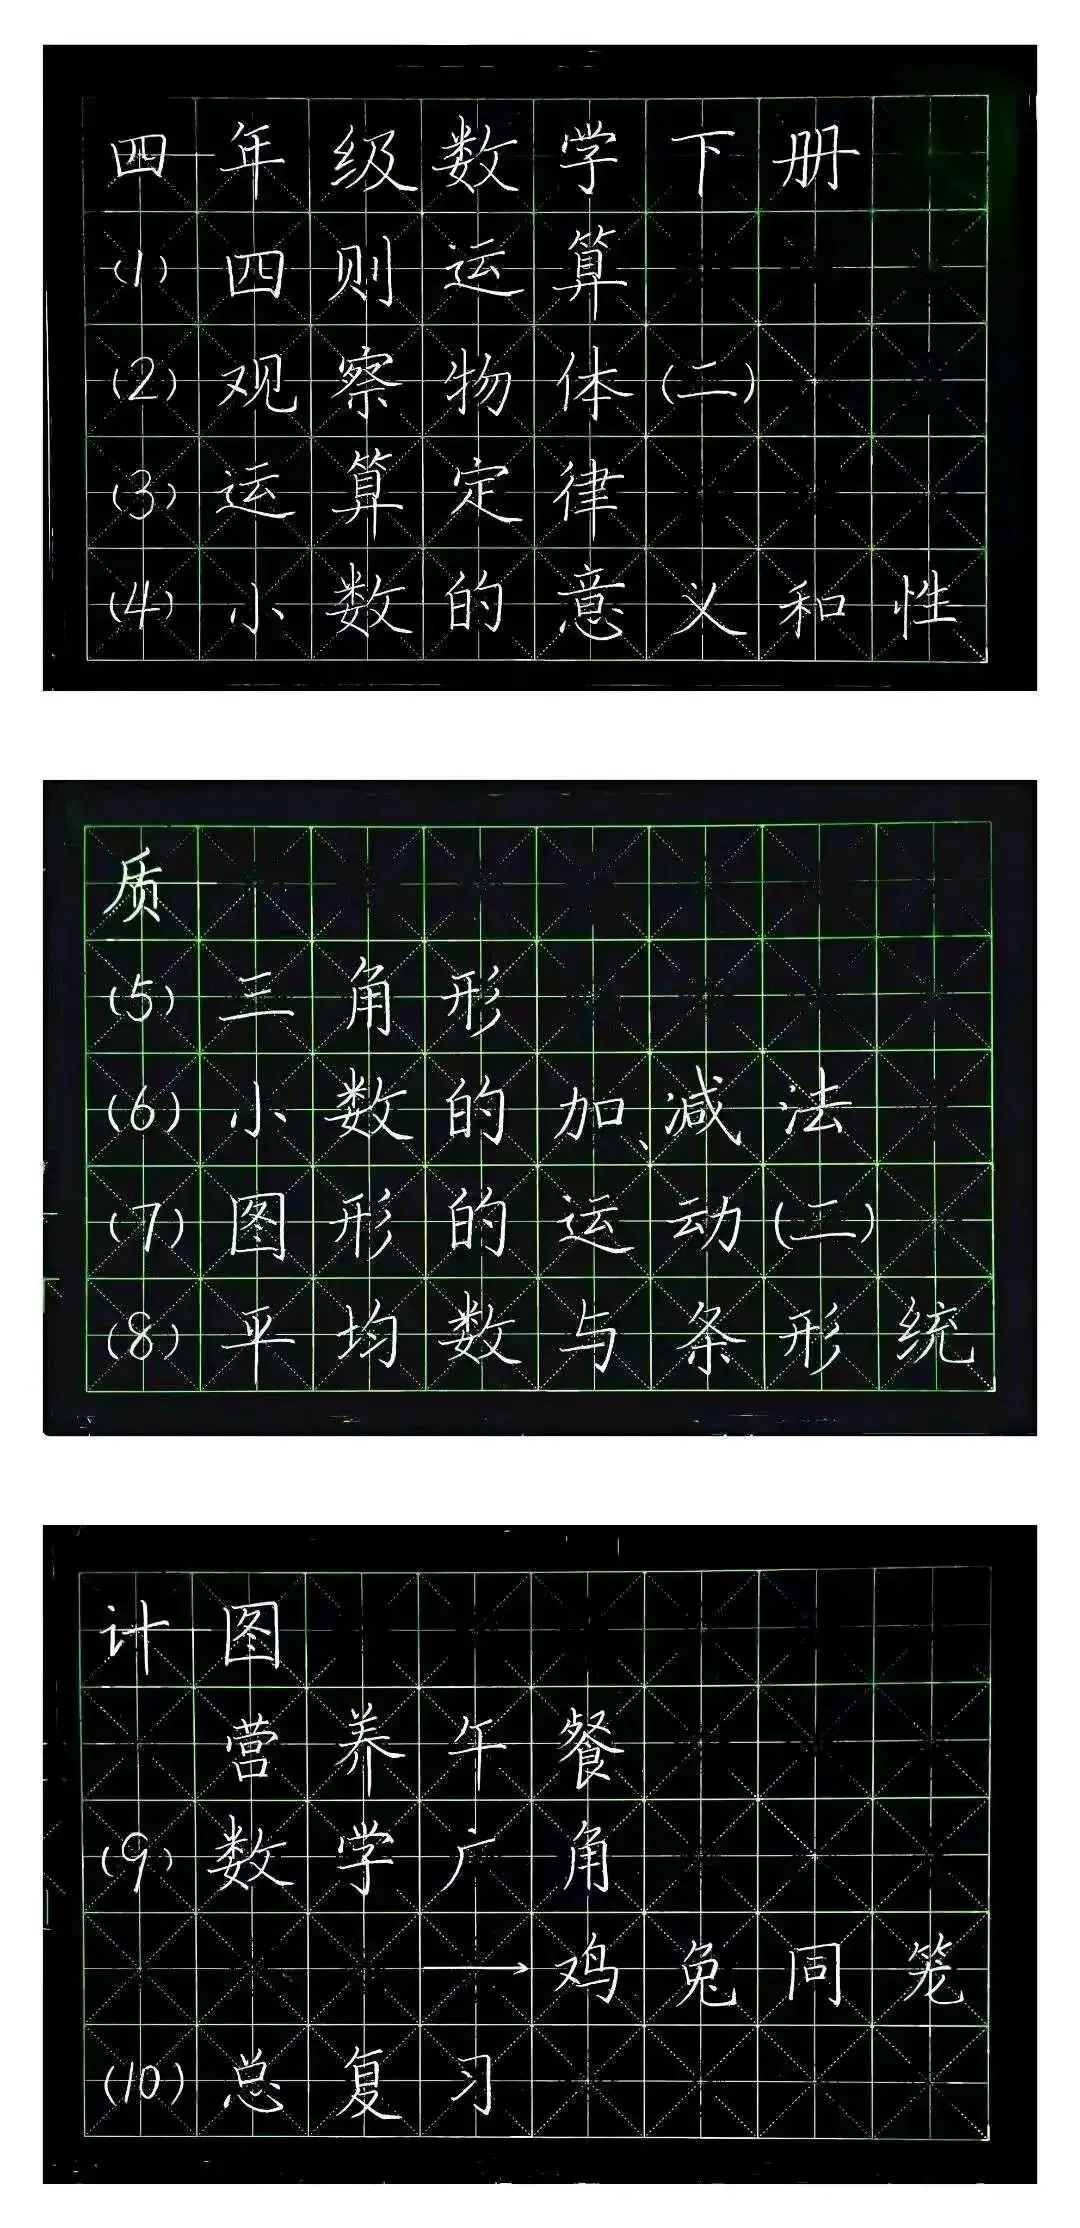 四年级数学下册
(1)四则运算
(2)观察物体(二)
(3)运算定律
(4)小数的意义和性
质
(5)三角形
(6)小数的加、减法
(7)图形的运动(二)
(8)平均数与条形统
计图
营养午餐
(9)数学广角
→鸡兔同笼
(10)总复习